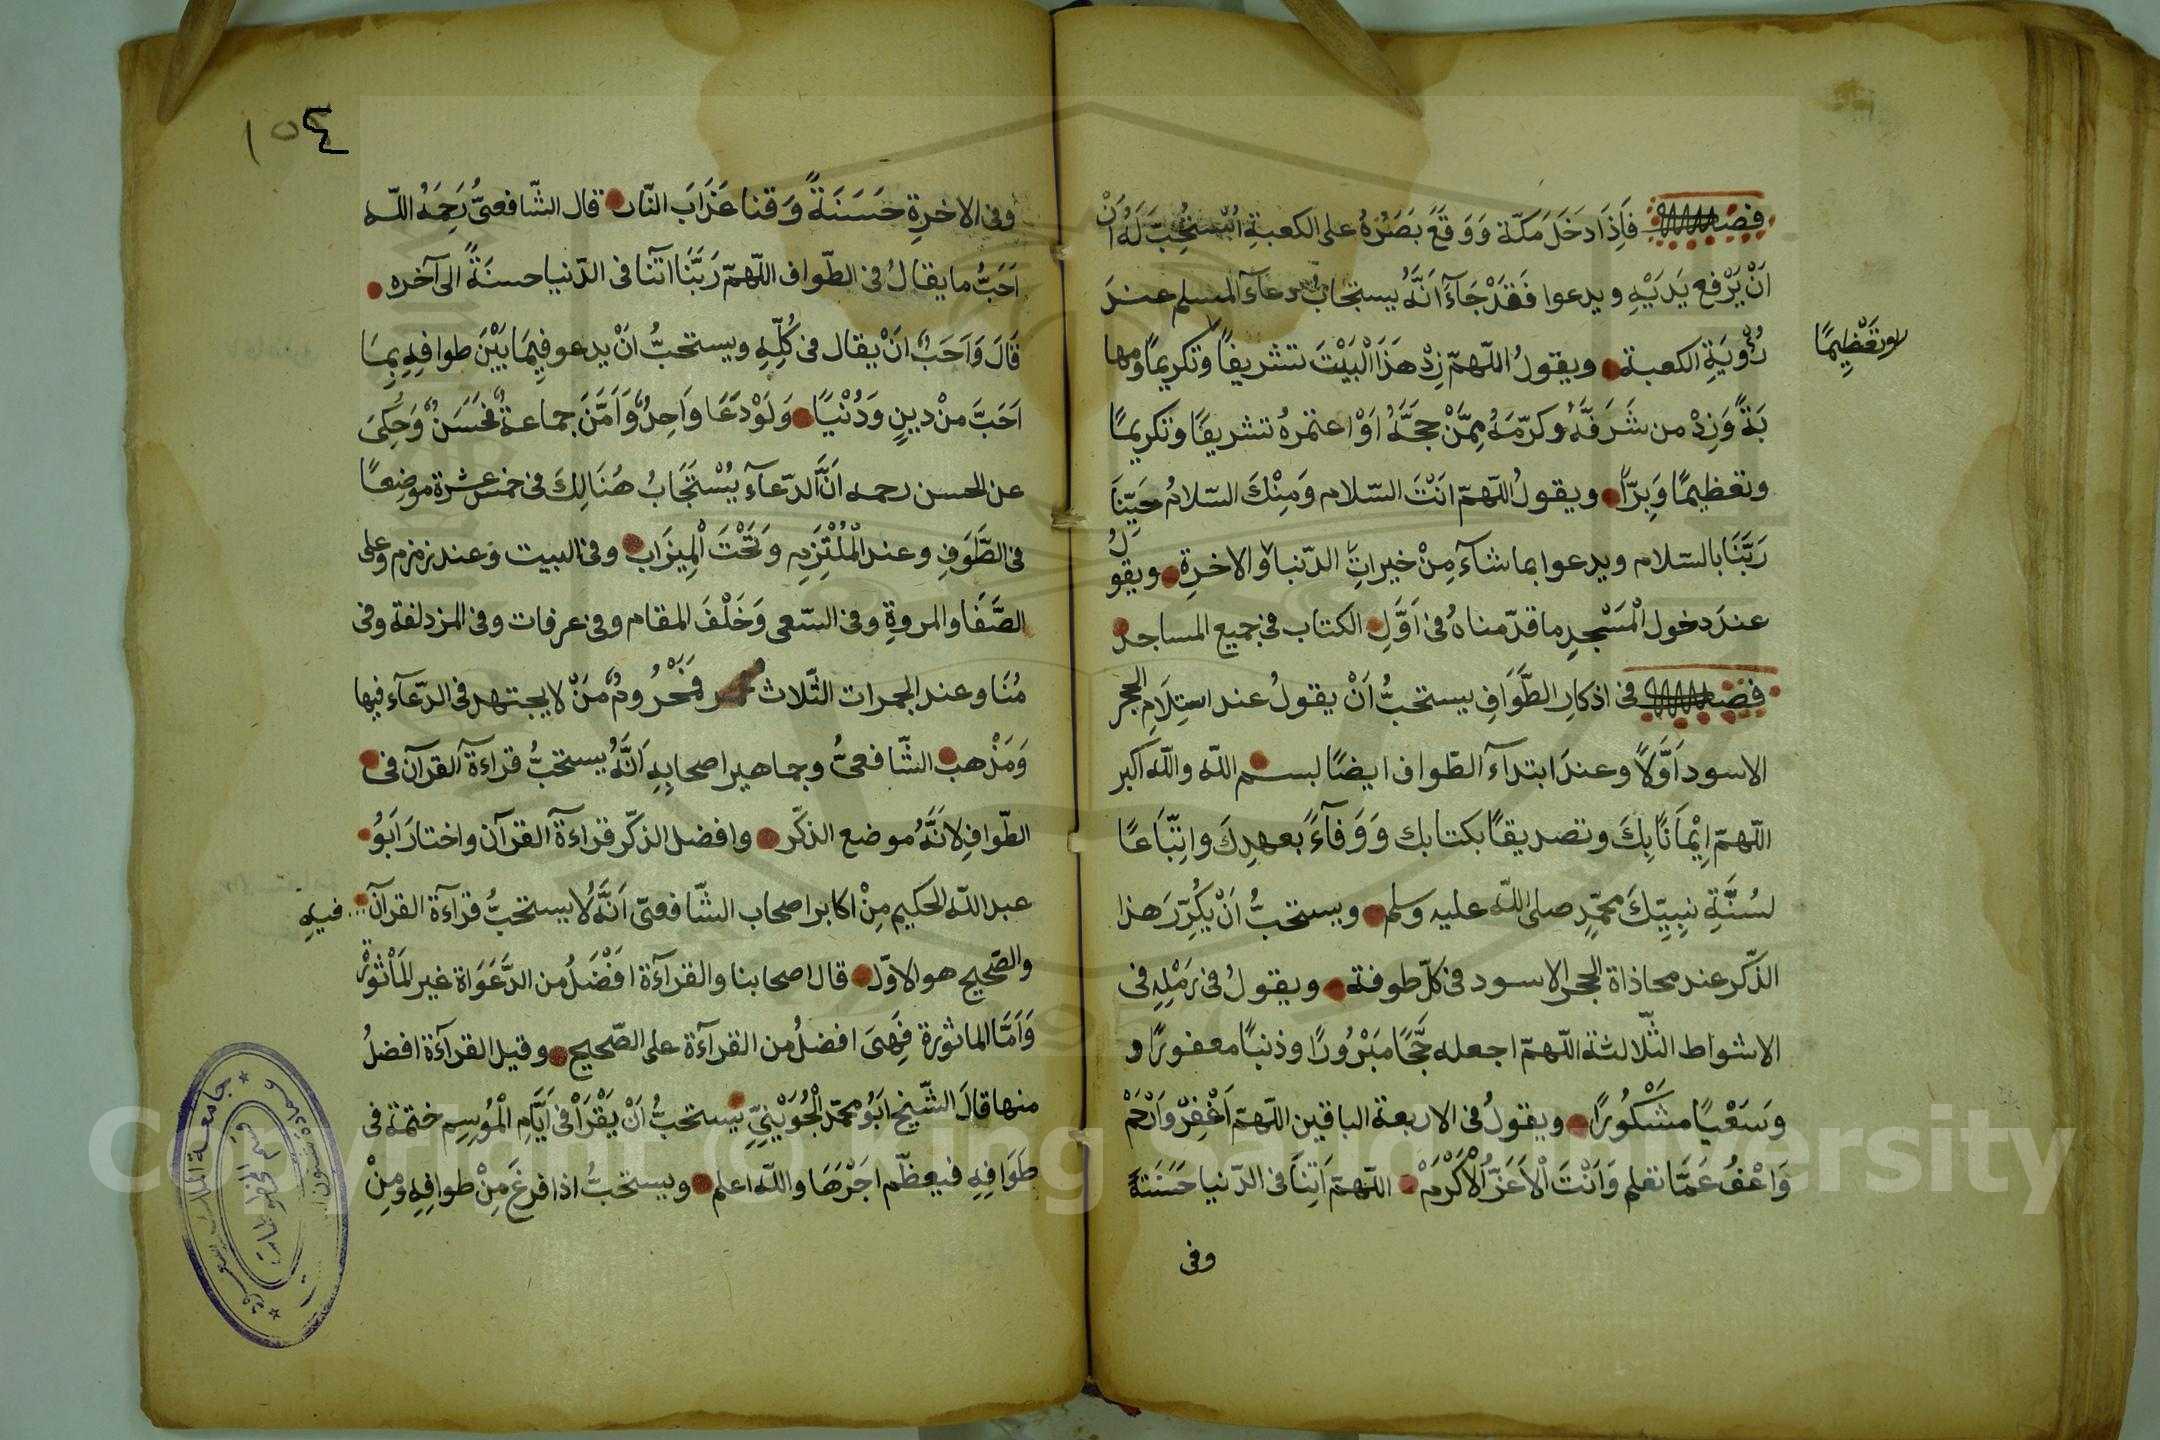 فصل فَاِذَا دَخَلَ مَكّةَ وَوَقَعَ بَصَرُهُ على الكعبةِ اُسْتُحِبَّ لَهُ اَنْ
اَنْ يَرْفع يَدَيْهِ ويدعوا فَقَدْ جَآءَ اَنَّهُ يستجاب دعآء المسلم عندَ
رُؤْيَةِ الكعبة ويقولُ اللّهمّ زِدْ هَذَا الْبَيْتَ تشريفًا وتكريمًا ومها
وتَعْظِيمًا
بَةً وَزِدْ من شَرَفَهُ وكرّمَهُ مِمَّنْ حَجَّهُ اَوْ اعتمرهُ تشريفًا وتكريمًا
وتعظيمًا وَبِرًّا ويقولُ اللّهمّ انْتَ السّلام وَمِنْكَ السّلامُ حَيِّنَا
رَبَّنَا بالسّلام ويدعوا بما شآءَ مِنْ خيراتِ الدّنيا والاخرةِ ويقولُ
عندَ دخول الْمَسْجِدِ ما قدّمناهُ فى اَوَّلِ الكتاب فى جميع المساجد
فصل فى اذكارِ الطَّوَافِ يستحبُّ اَنْ يقولُ عند استِلَامِ الحجر
الاسود اَوَّلًا وعندَ ابتدآء الطّواف ايضًا بسم اللّه واللّه اكبر
اللّهمّ اِيْمَانًا بِكَ وتصديقًا بكتابك وَوَفآءً بعهدِكَ واتِّبَاعًا
لسُنَّةِ نبِيِّكَ محمّدٍ صلى اللّه عليه وسلم ويستحبُّ اَنْ يُكرِّرَ هذا
الذّكر عند محاذاة الحجر الاسود فى كلّ طوفة ويقولُ فى رَمْلِهِ فى
الاشواط الثّلاثة اللّهمّ اجعله حَجًّا مَبْرُورًا وذنبًا مغفورًا و
وَسَعْيًا مَشْكُورًا ويقولُ فى الاربعة الباقين اللّهمّ اَغْفِرْ وَارْحَمْ
وَاعْفُ عَمَّا تعلم وَاَنْتَ الْاَعَزُّ الْاَكْرَمْ اللّهمّ اَتِنَا فى الدّنيا حَسَنَةً
وفى
١٥٤
وفى الاخرةِ حَسَنَةً وَقنا عَذَابَ النّار قال الشّافعىُّ رَحِمَهُ اللّه
اَحَبُّ ما يقالُ فى الطّواف اللّهمّ رَبَّنَا اتنا فى الدّنيا حسنَةً الى آخره
قَالَ وَاَحَبُّ اَنْ يقال فى كُلِّهِ ويستحبُّ اَنْ يدعو فِيمَا بَيْنَ طوافِهِ بِمَا
اَحَبَّ منْ دينٍ وَدُنْيَا وَلَوْ دَعَا وَاحِدٌ وَاَمَّنَ جماعةٌ فحَسَنٌ وَحُكِىَ
عن الحسن رحمه اَنَّ الدّعآء يُسْتَجَابُ هُنَالِكَ فى خمس عشرة موضِعًا
فى الطَّوَفِ وعند الْمُلْتَزَمِ وَتَحْتَ الْمِيزَاب وفى البيت وعند زمزم وعلى
الصَّفَا والمروةِ وفى السّعى وَخَلْفَ المقام وفى عرفات وفى المزدلفة وفى
مُنَا وعند الجمرات الثّلاث فَمَحْرُومٌ مَنْ لا يجتهد فى الدّعآء فيها
وَمَذْهب الشّافعىُّ وجماهير اصحابِهِ اَنَّهُ يستحبُّ قراءة القرآن فى
الطّوافِ لانَّهُ موضع الذكّر وافضل الذكّر قراءة القرآن واختارَ اَبُوُ
عبد اللّه الحكيم مِنْ اكابر اصحاب الشّافعىّ اَنَّهُ لا يستحبُّ قراءة القرآن فيهِ
والصّحيح هو الاوّل قال اصحابنا والقرآءة افْضَلُ من الدَّعَوَاة غير المَأْثورْة
وَاَمّا الماثورة فَهِىَ افضلُ من القرآءة على الصّحيح وقيل القرآءة افضلُ
منها قالَ الشّيخ ابَوُ محمّد الْجُوَيْنِىِّ يستحبُّ اَنْ يَقْرَأ فى اَيَّامِ الْمُوسِم ختمة فى
طَوَافِهِ فيعظّم اجَرْهَا واللّه اعلم ويستحبُّ اذا فرغَ مِنْ طوافِهِ وَمِنْ
جامعة الملك سعود
قسم المخطوطات
Copyright © King Saud University